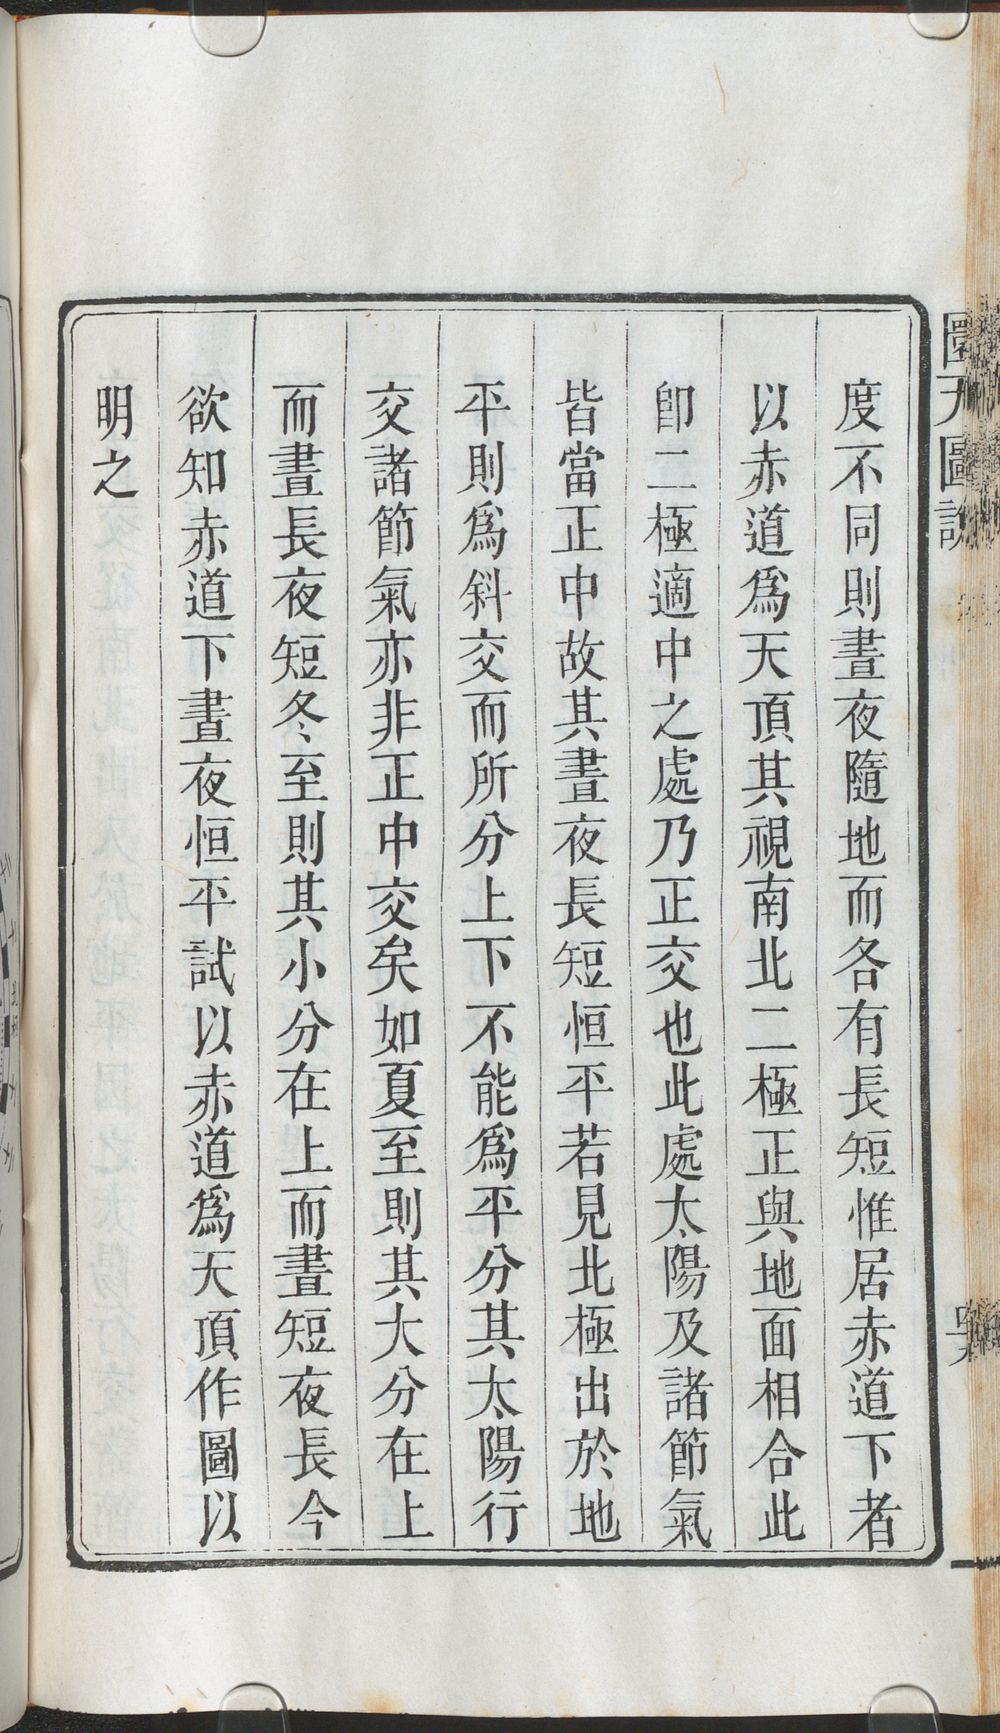 圜天圖說
度不同則晝夜隨地而各有長短惟居赤道下者
以赤道爲天頂其視南北二極正與地面相合此
卽二極適中之處乃正交也此處太陽及諸節氣
皆當正中故其晝夜長短恒平若見北極出於地
平則爲斜交而所分上下不能爲平分其太陽行
交諸節氣亦非正中交矣如夏至則其大分在上
而晝長夜短冬至則其小分在上而晝短夜長今
欲知赤道下晝夜恒平試以赤道爲天頂作圖以
明之